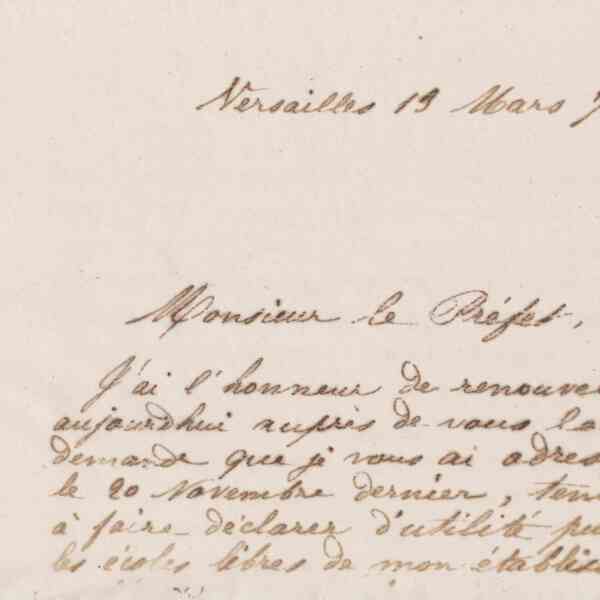 Versailles 19 Mars 7
Monsieur le Préfet,
J'ai l'honneur de renouvel
aujourdhui auprès de vous la
demande que je vous ai adres
le 20 Novembre dernier, ten
à faire déclarer d'utilité pu
les écoles libres de mon établis